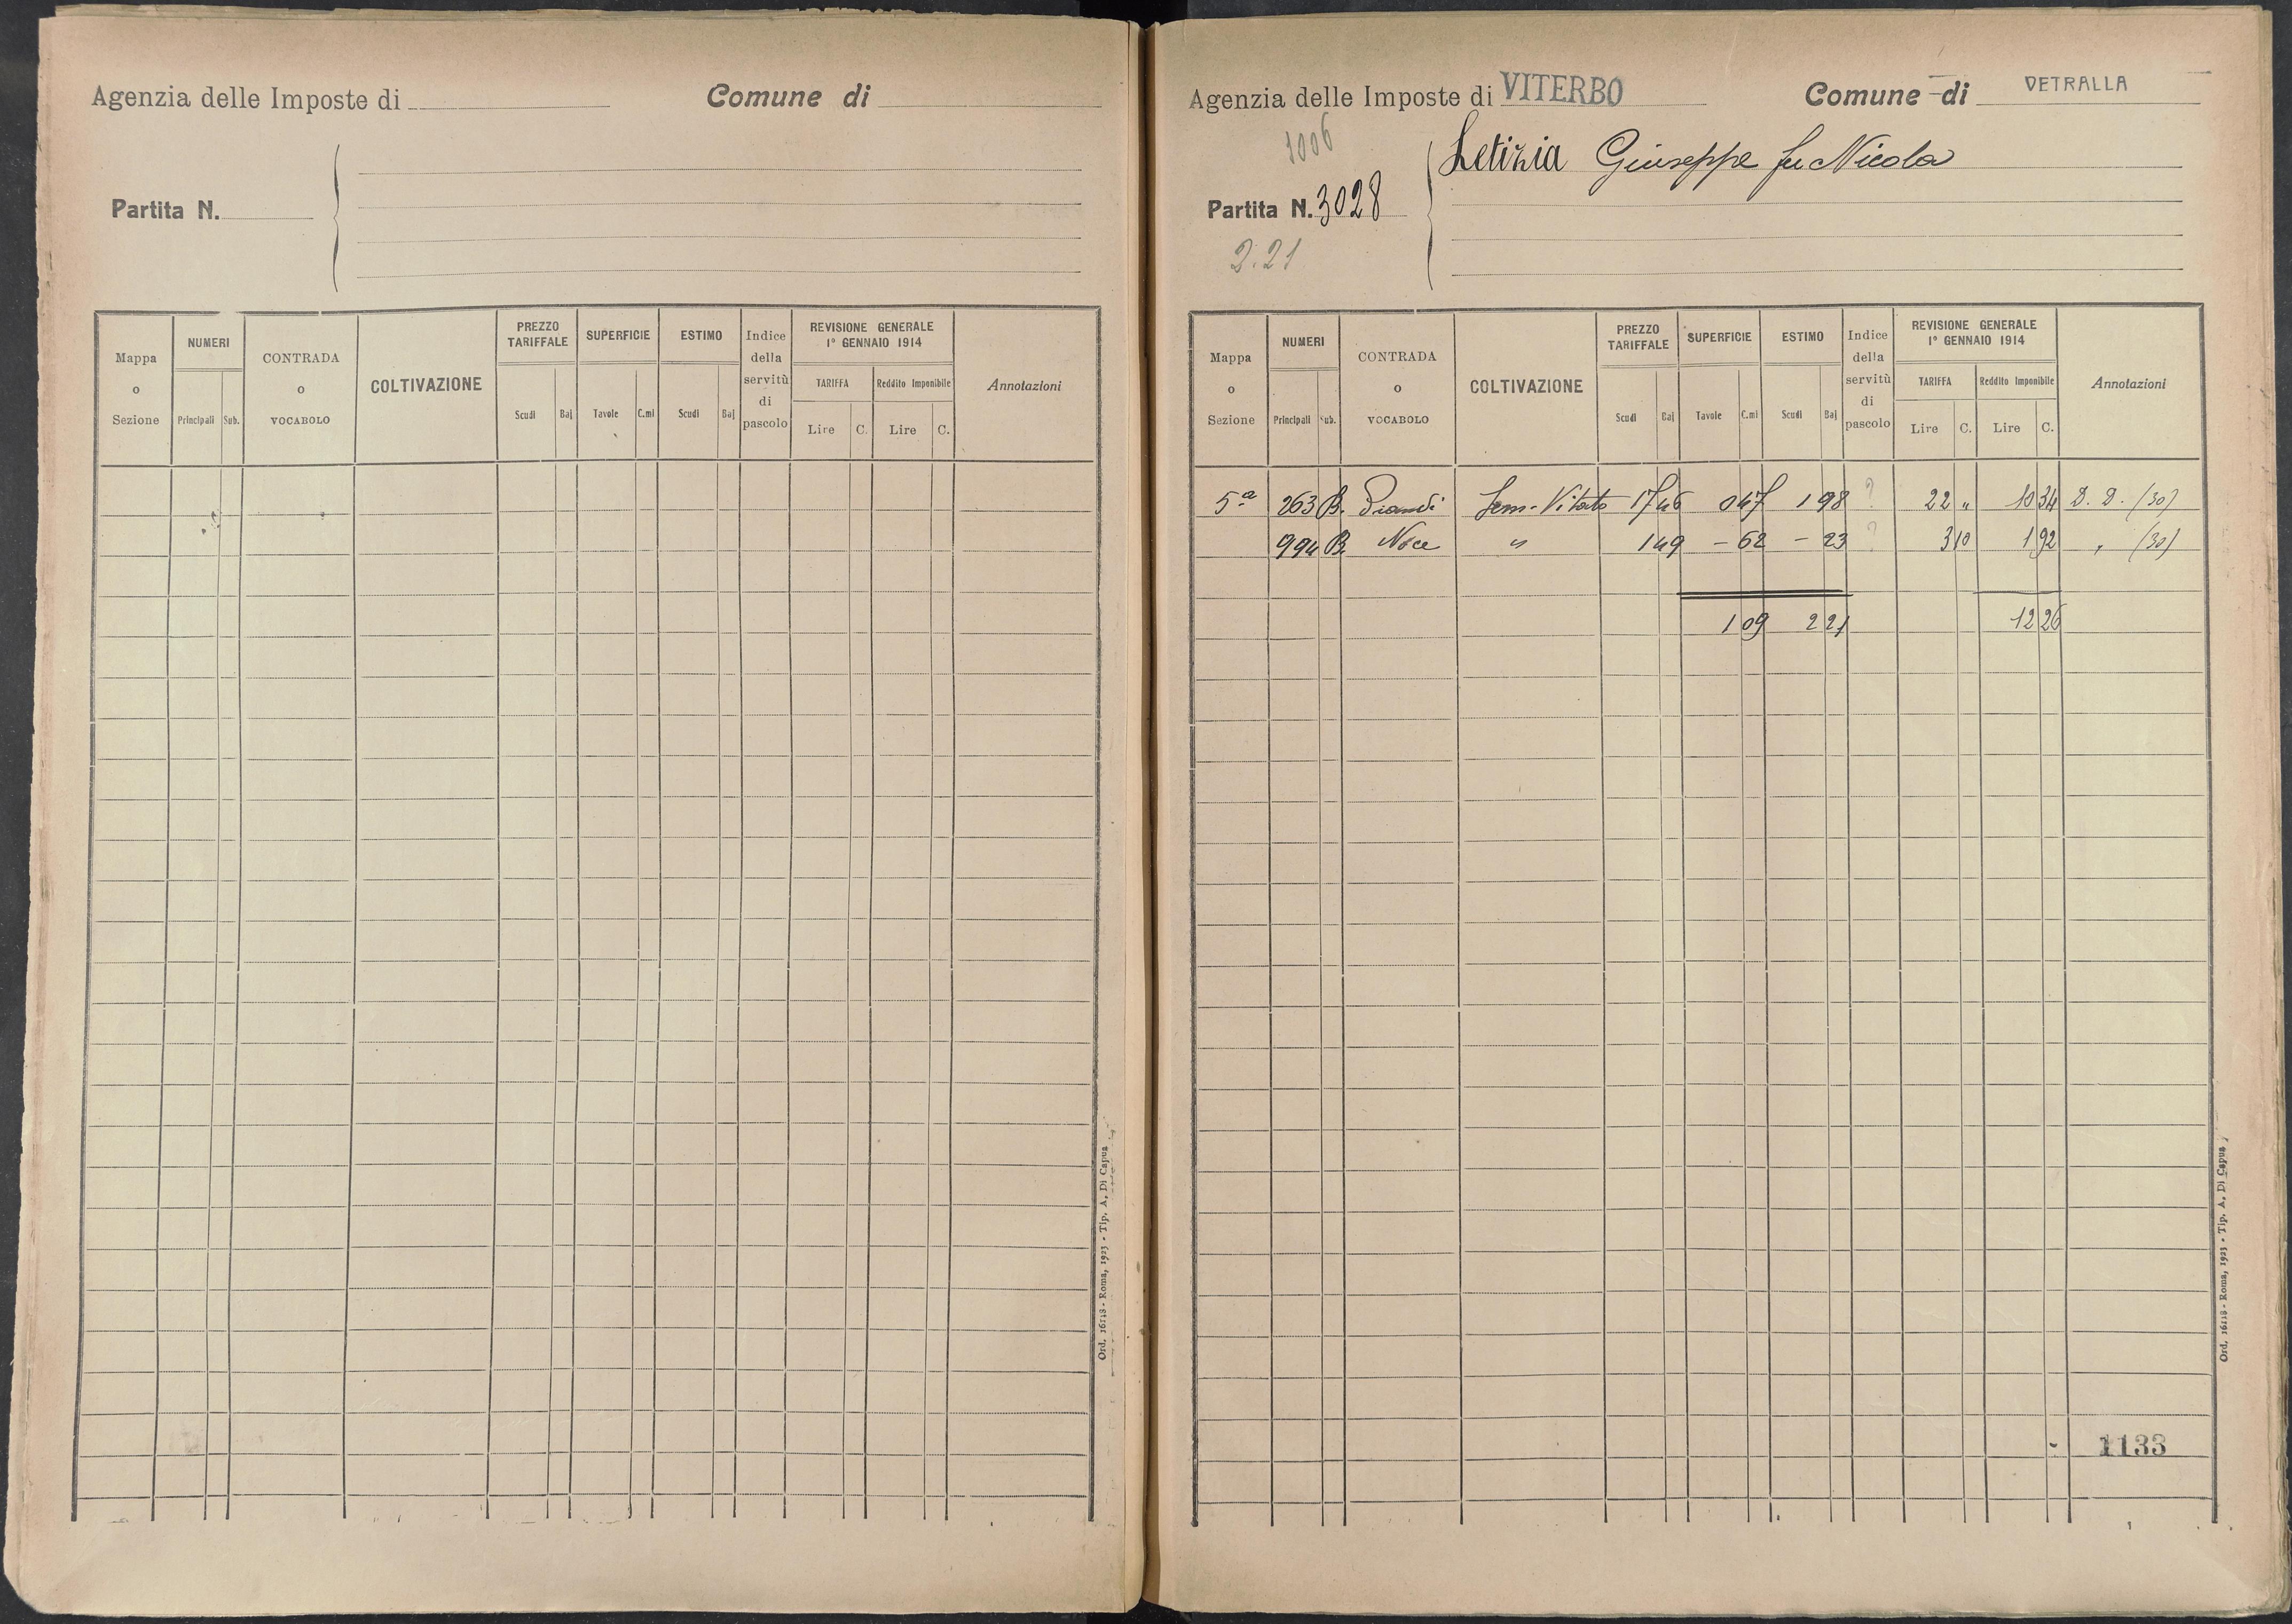 Agenzia delle Imposte di
Comune di
Partita N.
Mappa o Sezione
NUMERI
Principali Sub.
CONTRADA o VOCABOLO
COLTIVAZIONE
PREZZO TARIFFALE
Scudi Baj
SUPERFICIE
Tavole C.mi
ESTIMO
Scudi Baj
Indice della servitù di pascolo
REVISIONE GENERALE
1° GENNAIO 1914
TARIFFA
Lire C.
Reddito Imponibile
Lire C.
Annotazioni
Ord. 16118 - Roma, 1923 - Tip. A. Di Capua
Agenzia delle Imposte di VITERBO
Comune di VETRALLA
1006
Letizia Giuseppe fu Nicola
Partita N. 3028
2.21
Mappa o Sezione
NUMERI
Principali Sub.
CONTRADA o VOCABOLO
COLTIVAZIONE
PREZZO TARIFFALE
Scudi Baj
SUPERFICIE
Tavole C.mi
ESTIMO
Scudi Baj
Indice della servitù di pascolo
REVISIONE GENERALE
1° GENNAIO 1914
TARIFFA
Lire C.
Reddito Imponibile
Lire C.
Annotazioni
5ª 263 B. Sem-Vitato 1 98 ? 22 " 10 34 D. D. (30)
994 B. Noce " - 62 - 23 ? 3 10 1 92 " (30)
1 09 2 21 12 26
1133
Ord. 16118 - Roma, 1923 - Tip. A. Di Capua